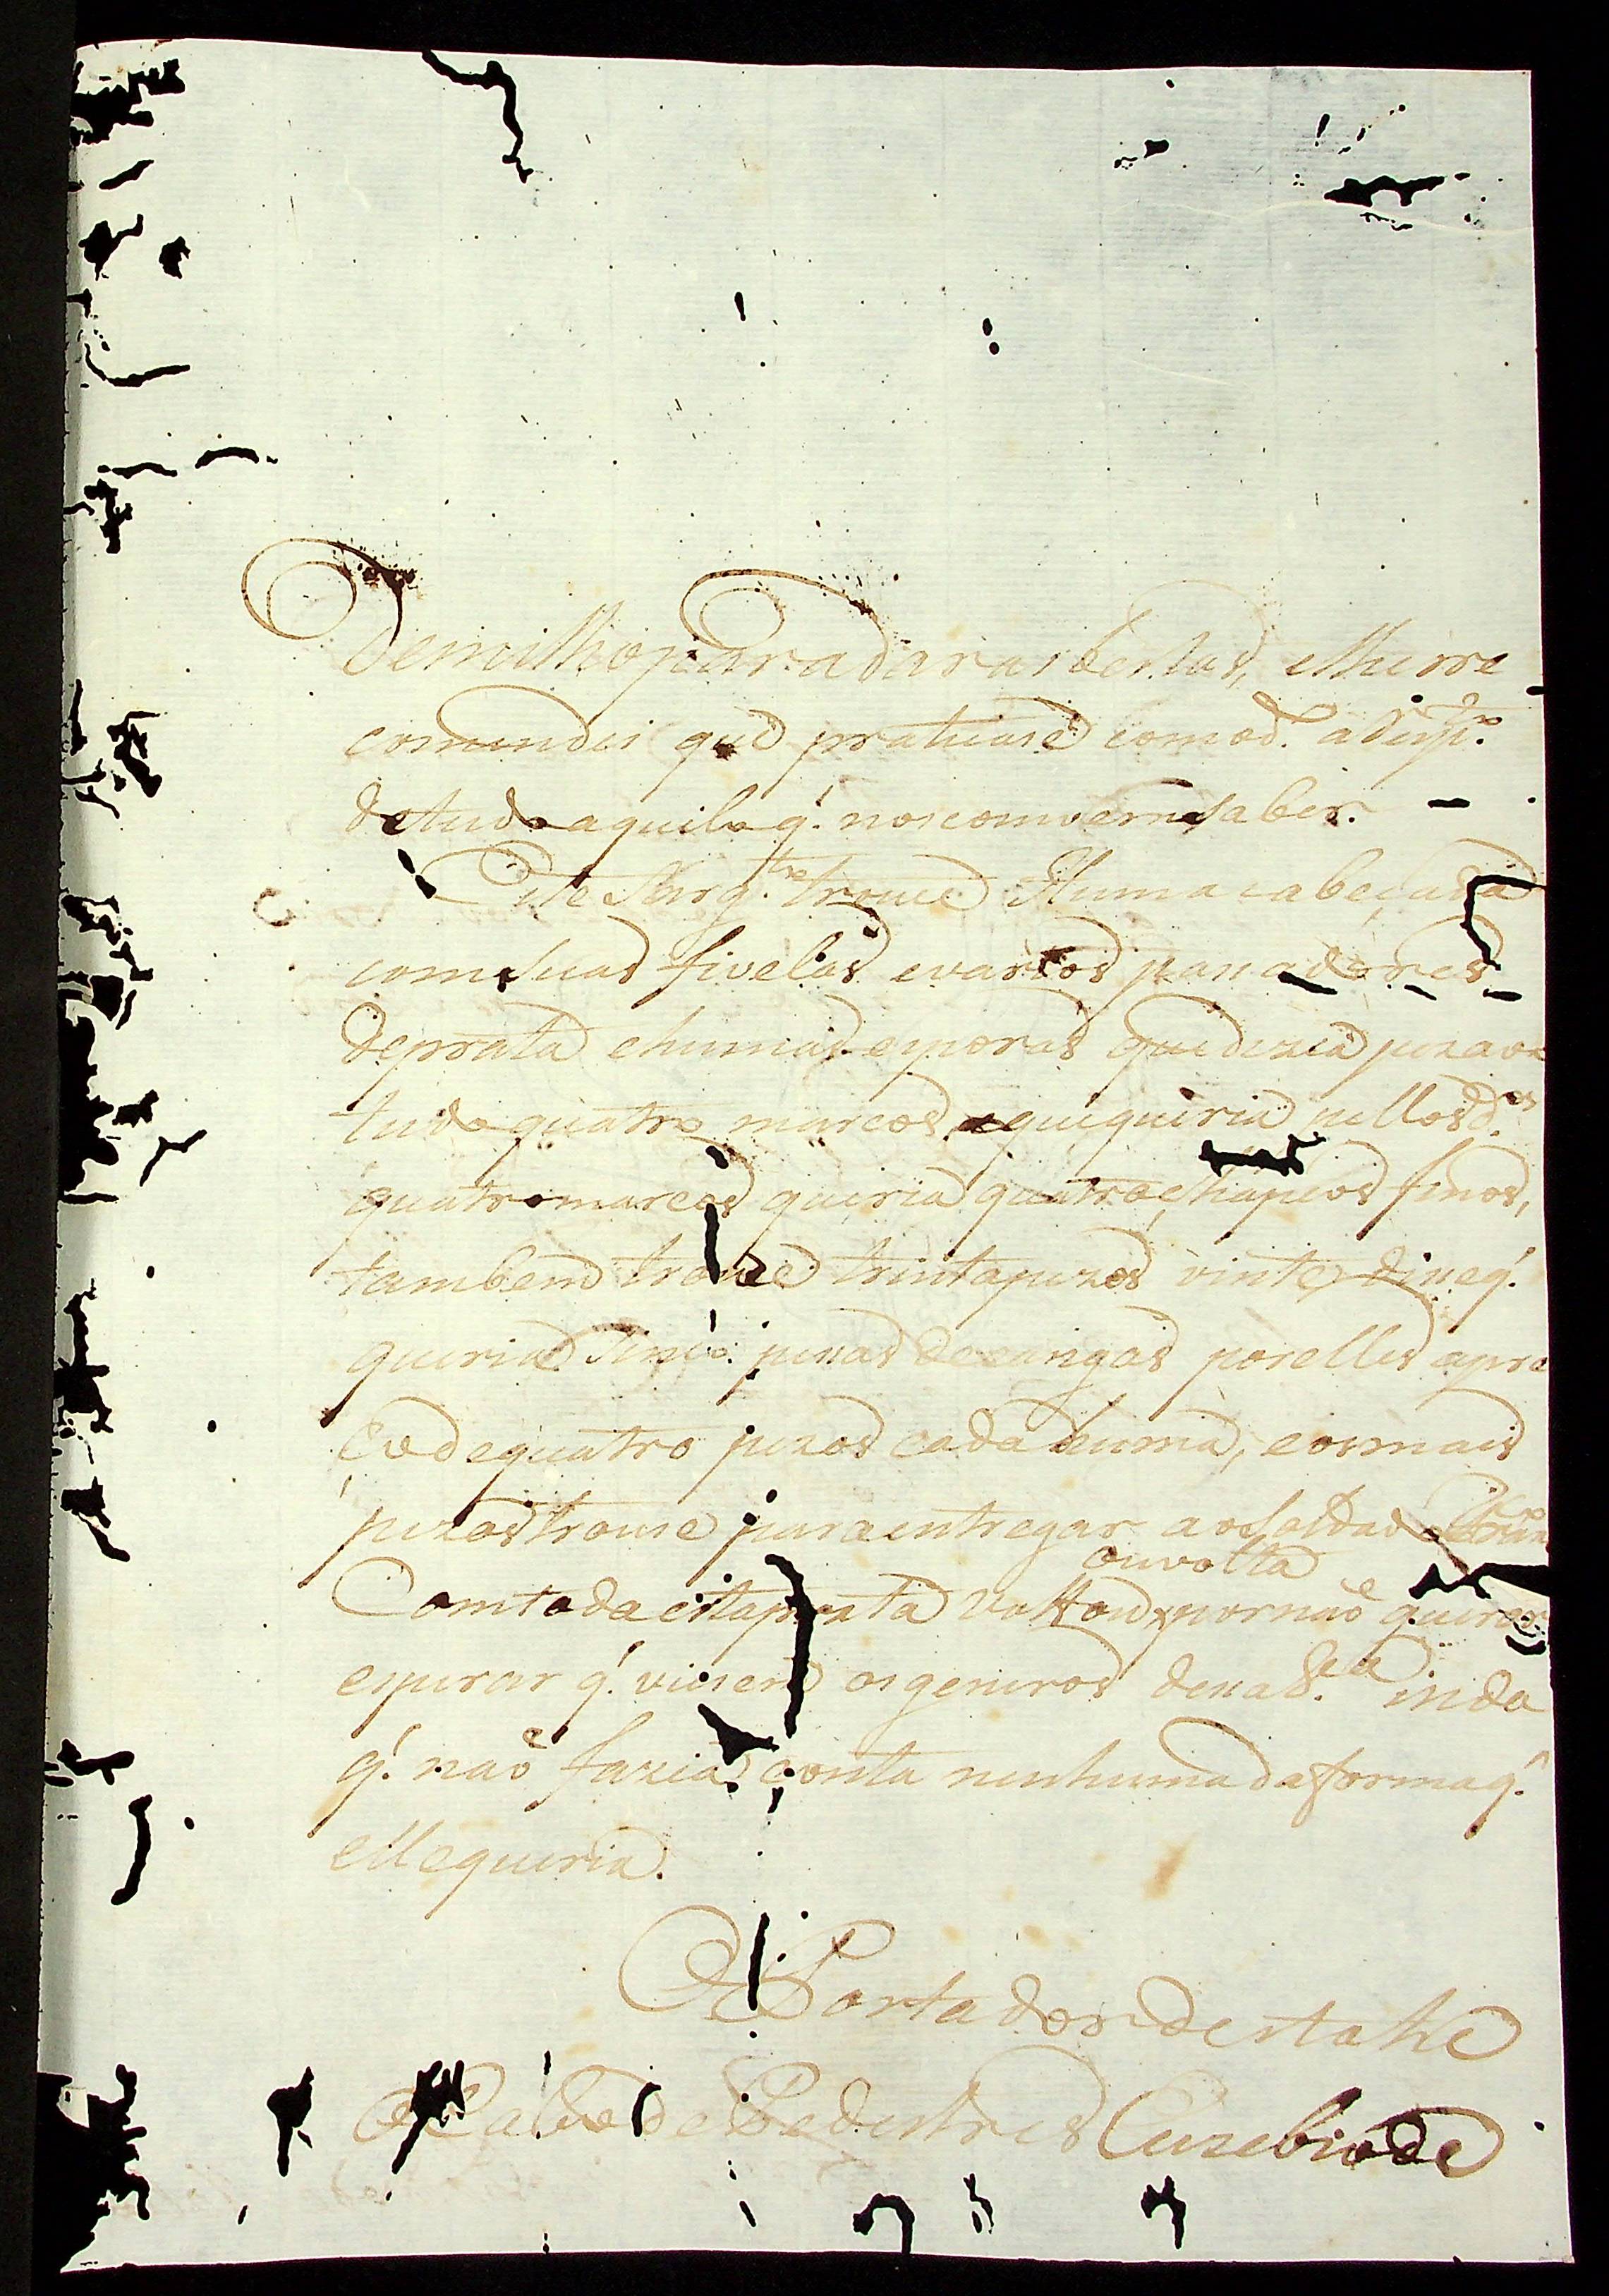 de milho para dar as bestas, e lhe rre
comendei que praticase com od.º a resp.to
de tudo aquilo q'. nos convem saber.
Este Sarg.to trouce Huma cabeçada
com suas fivelas e varios pasadores
de prata e humas esporas que dezia pezava
tudo quatro marcos, e que queria pellos d.os
quatro marcos queria quatro chapeos finos,
tambem trouce trinta pezos vinte dise q'.
queria sinco pesas de cangas por elles a pre
ço de quatro pezos cada huma, e os mais
pezos trouse para entregar ao Soldado
ou volta
Com toda esta prata voltou por naõ querer
esperar q'. viesem os generos desa inda
q'. naõ fazia conta nenhuma da forma q'.
elle queria.
O Portador desta he
O Cabo de Pedestres Euzebio de